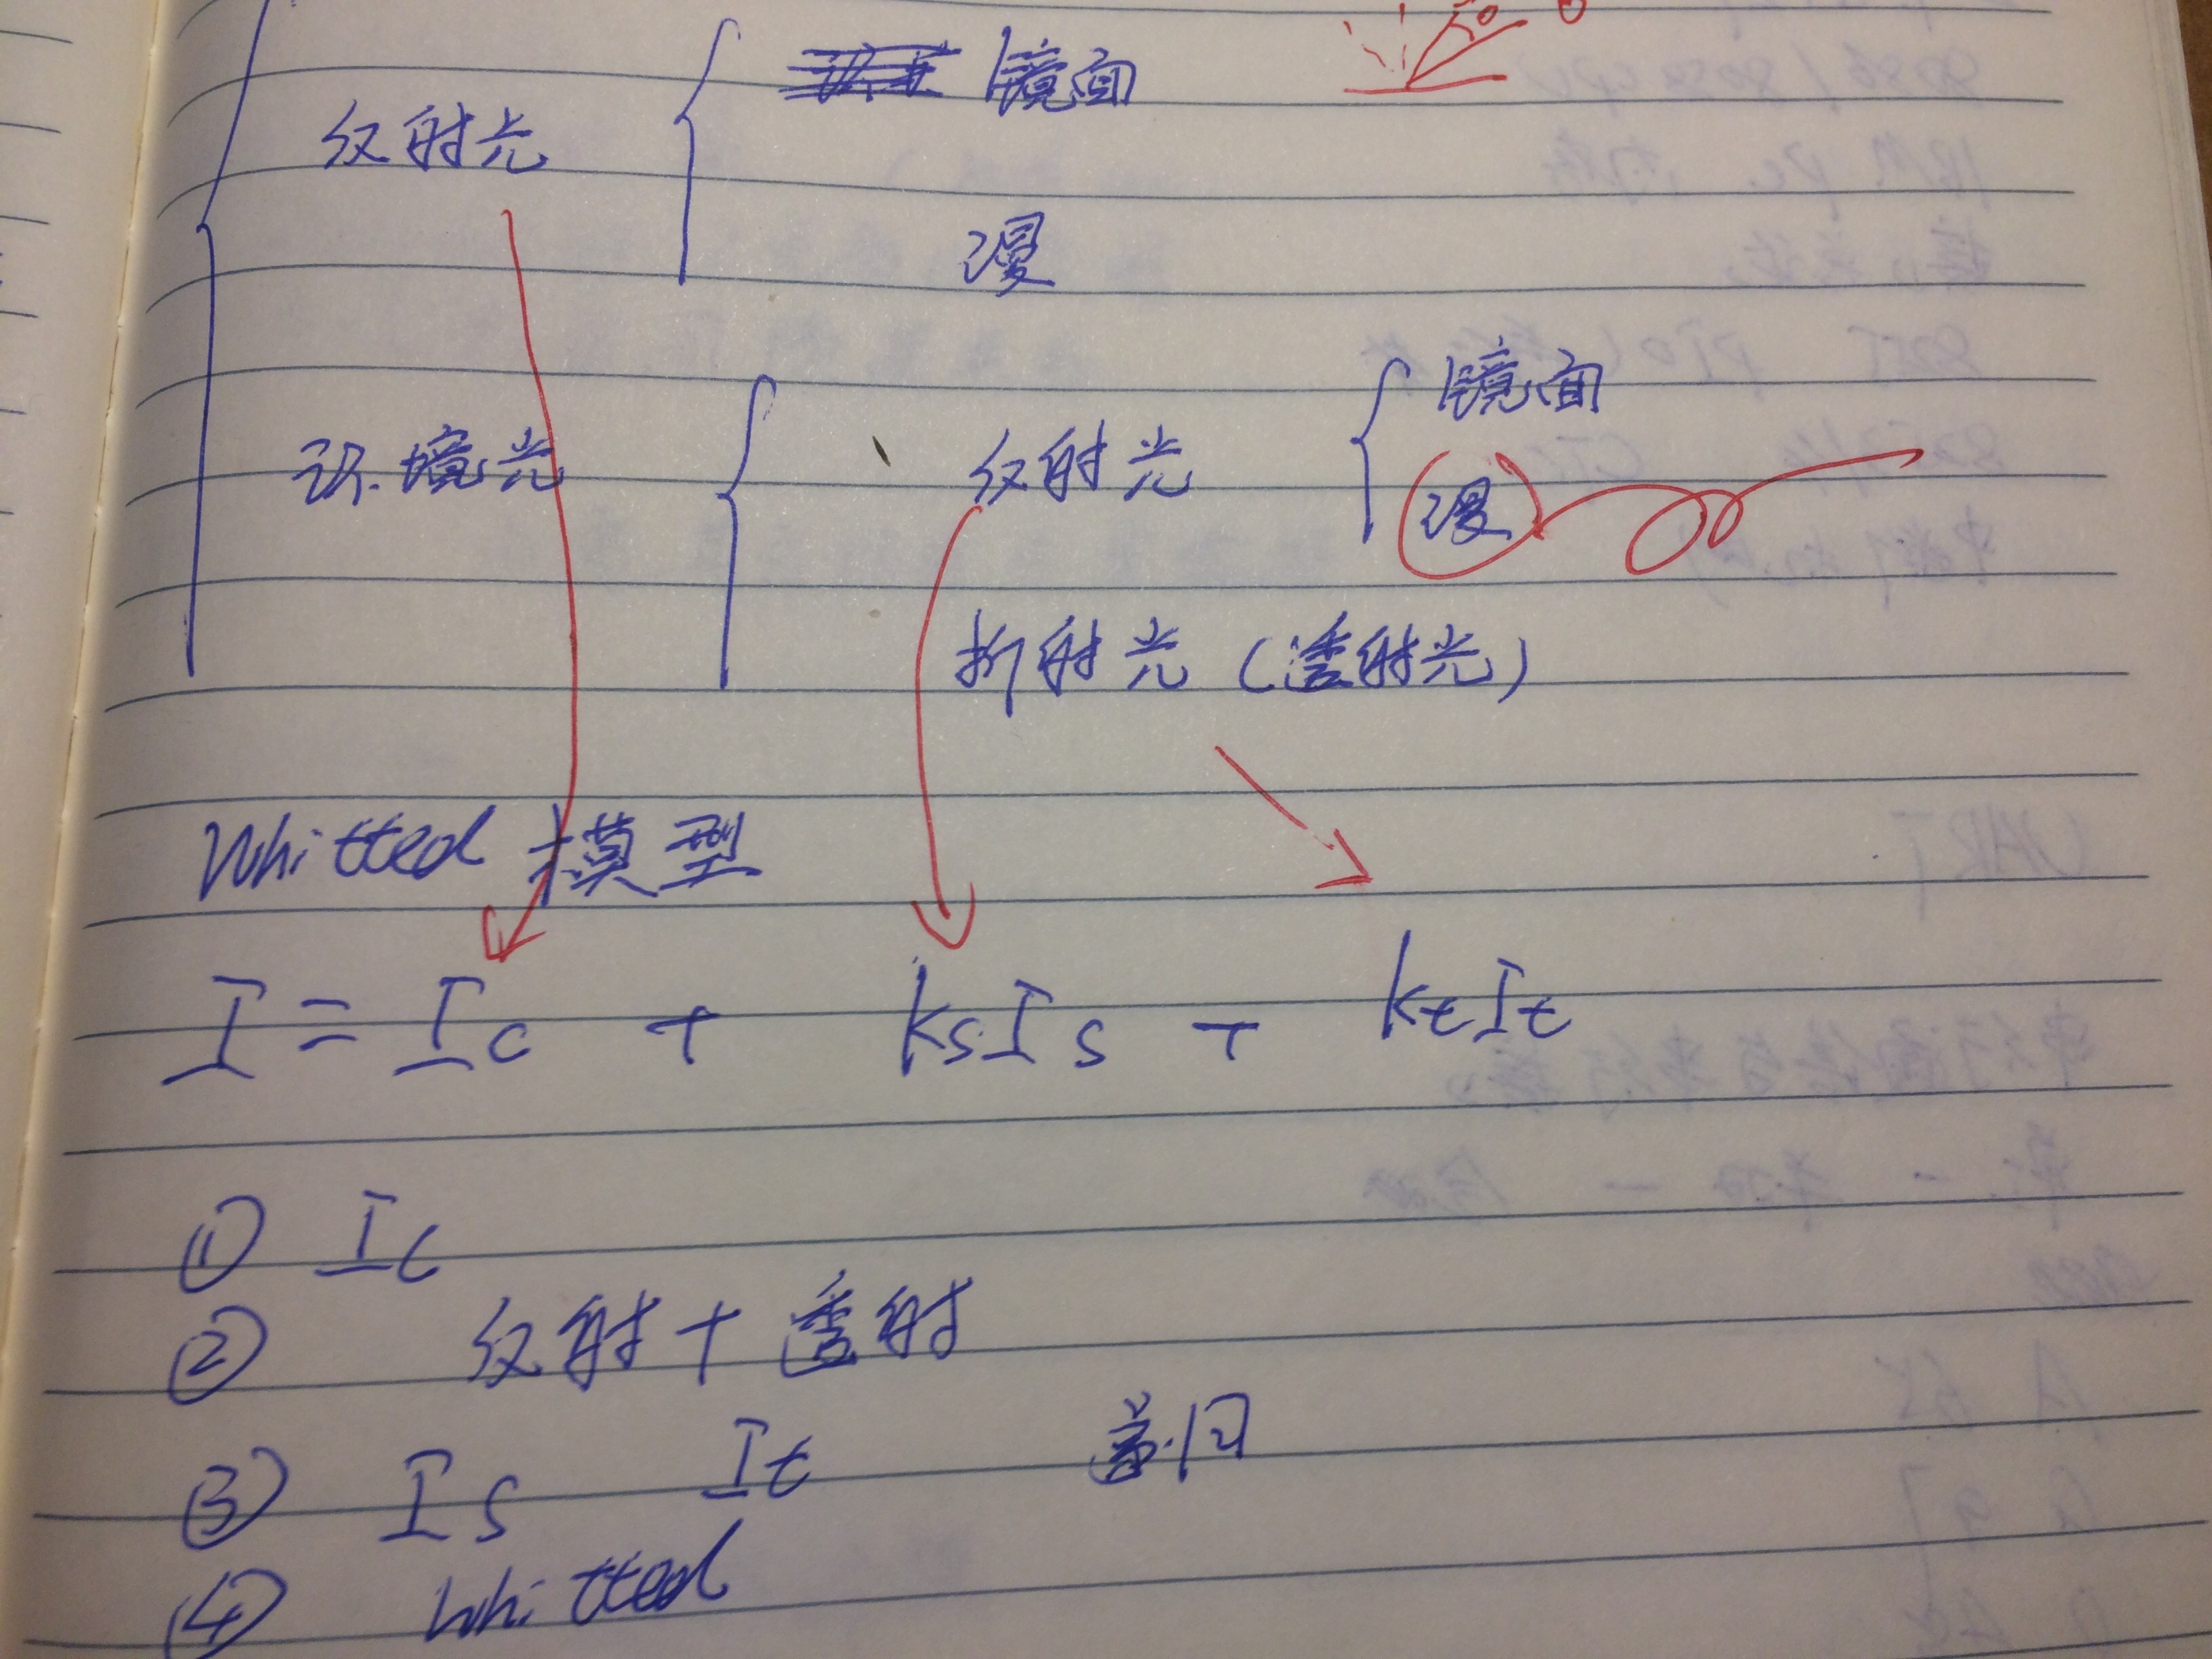 镜面
反射光
漫
镜面
环境光 反射光
漫
折射光(透射光)
Whitted 模型
I = Ic + ksIs + ktIt
① Ic
② 反射+透射
③ Is It 递归
④ Whitted